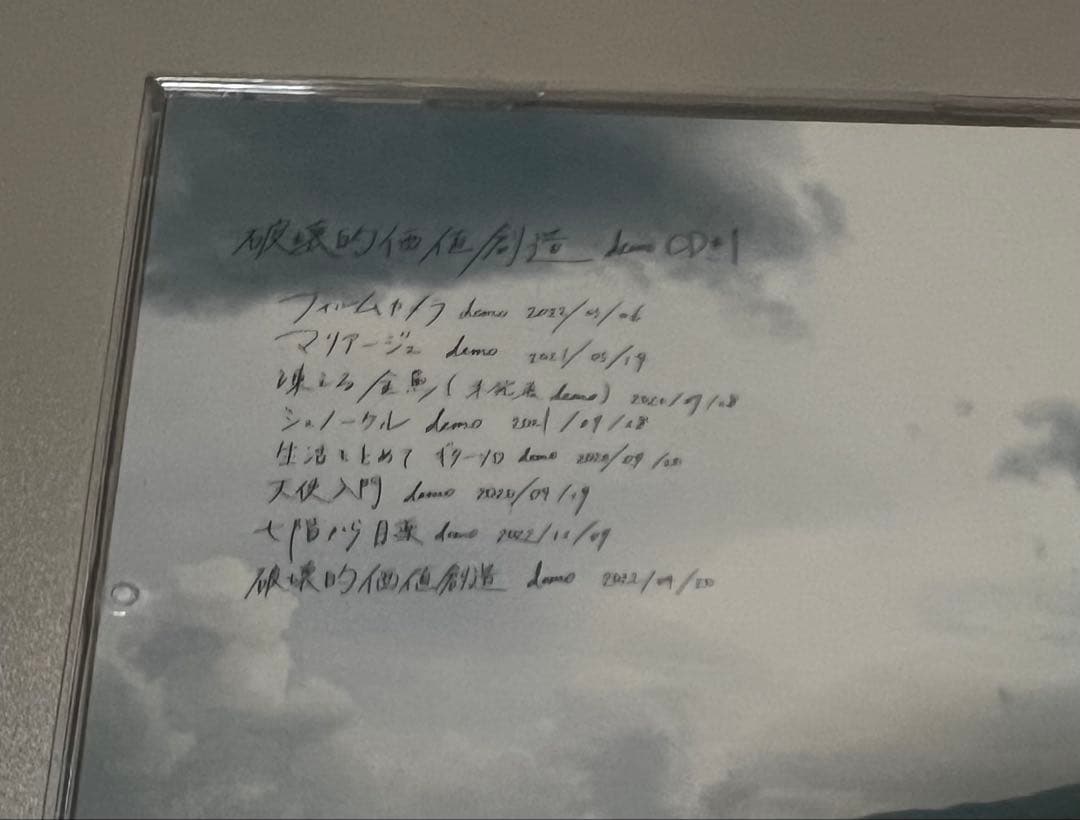 破壊的価値創造 demo CD#1
フィルムカメラ demo 2022/03/06
マリアージュ demo 2021/05/19
凍える金魚(未発表demo) 2020/09/28
シュノーケル demo 2021/09/28
生活をとめて ギターソロ demo 2020/09/20
天使入門 demo 2020/09/19
七階から目薬 demo 2022/11/09
破壊的価値創造 demo 2022/09/20